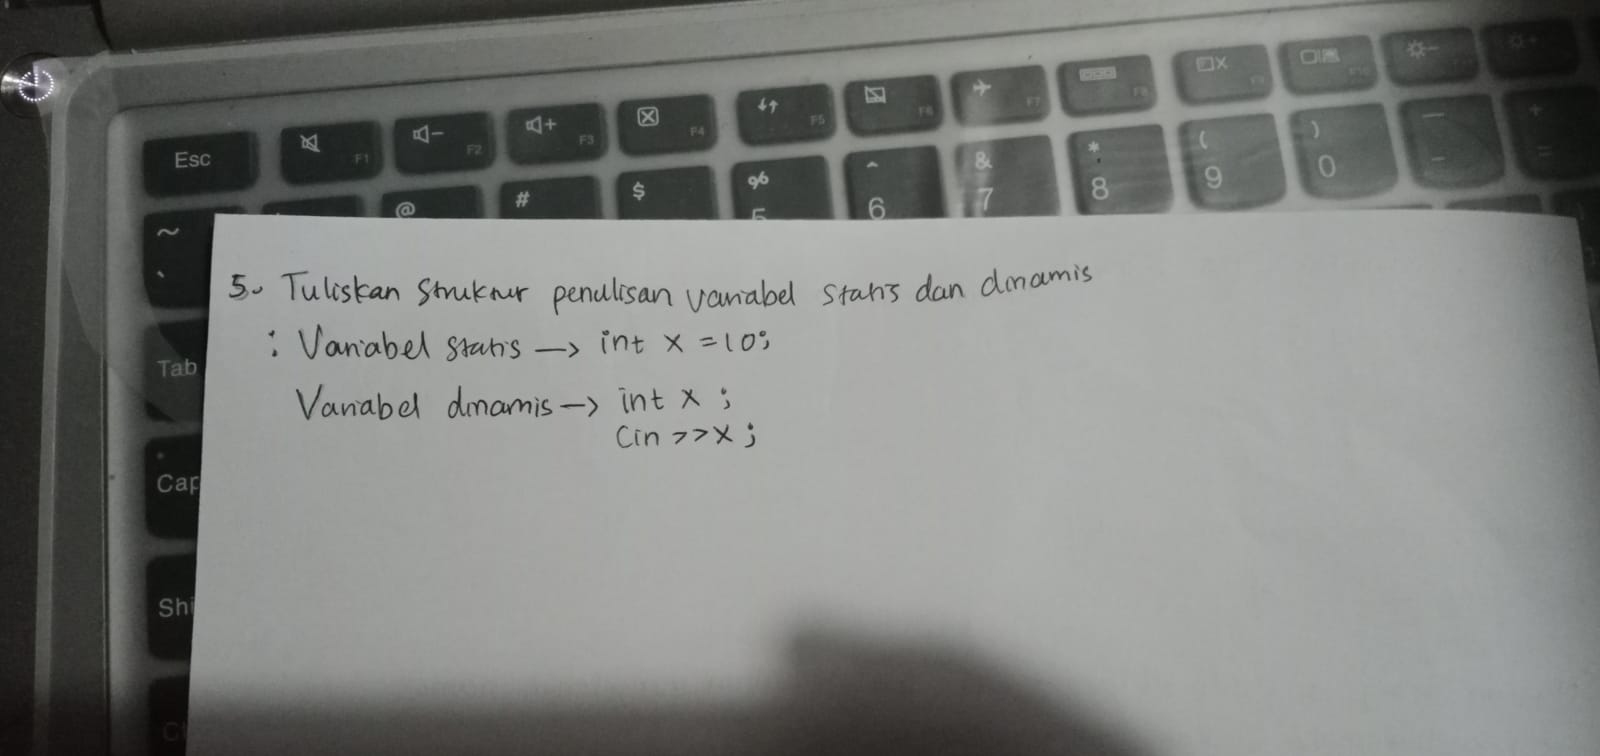 Esc
F1
F2
F3
F4
F5
F6
F7
F8
~
@
#
$
%
5
^
6
&
7
*
8
(
9
)
0
—
-
+
=
Tab
Cap
Shi
5. Tuliskan Struktur penulisan variabel statis dan dinamis
: Variabel statis —> int x = 10;
Variabel dinamis —> int x ;
Cin >> x ;